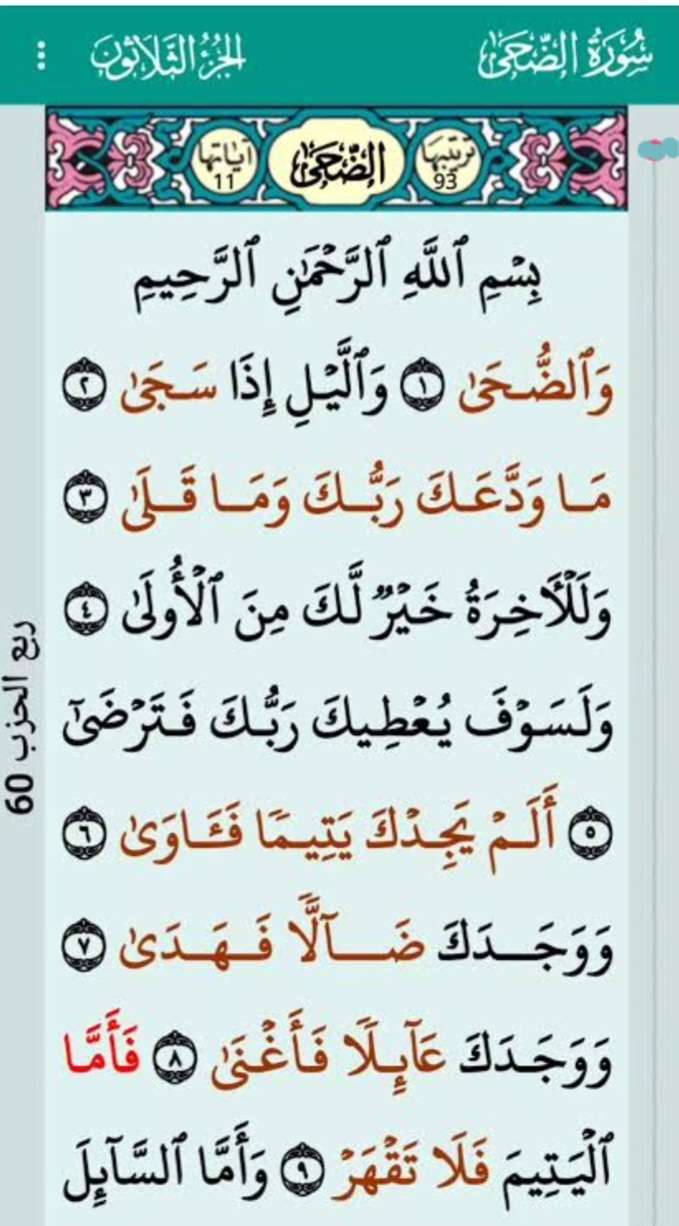 سُورَةُ الضُّحَىٰ الجُزْءُ الثَّلَاثُونَ
ترتيبها 93 الضُّحَىٰ آياتها 11
بِسْمِ ٱللَّهِ ٱلرَّحْمَٰنِ ٱلرَّحِيمِ
وَٱلضُّحَىٰ ١ وَٱلَّيْلِ إِذَا سَجَىٰ ٢
مَا وَدَّعَكَ رَبُّكَ وَمَا قَلَىٰ ٣
وَلَلْـَٔاخِرَةُ خَيْرٌ لَّكَ مِنَ ٱلْأُولَىٰ ٤
وَلَسَوْفَ يُعْطِيكَ رَبُّكَ فَتَرْضَىٰٓ
٥ أَلَمْ يَجِدْكَ يَتِيمًا فَـَٔاوَىٰ ٦
وَوَجَدَكَ ضَآلًّا فَهَدَىٰ ٧
وَوَجَدَكَ عَآئِلًا فَأَغْنَىٰ ٨ فَأَمَّا
ٱلْيَتِيمَ فَلَا تَقْهَرْ ٩ وَأَمَّا ٱلسَّآئِلَ
ربع الحزب 60